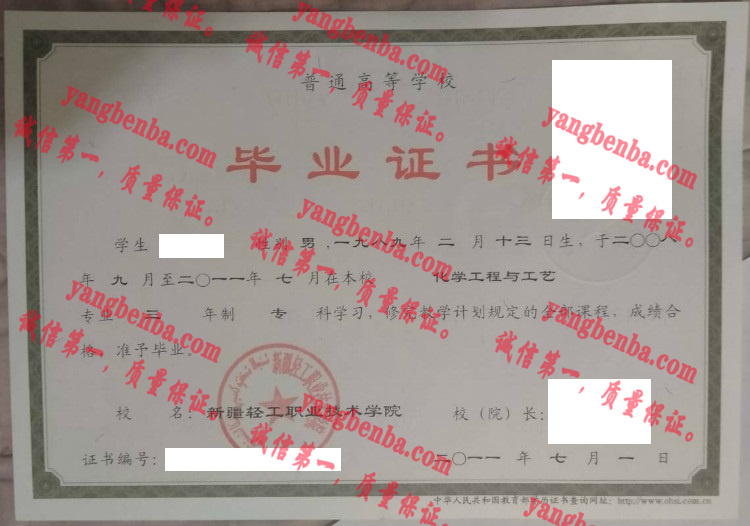 普通高等学校
毕业证书
学生 性别 男 ,一九八九年 二 月 十三 日生，于二〇〇八
年 九 月至二〇一一年 七 月在本校 化学工程与工艺
专业 三 年制 专 科学习，修完教学计划规定的全部课程，成绩合
格，准予毕业。
校 名：新疆轻工职业技术学院 校（院）长：
证书编号： 二〇一一 年 七 月 一 日
中华人民共和国教育部学历证书查询网址：http://www.chsi.com.cn
yangbenba.com
诚信第一，质量保证。
yangbenba.com
诚信第一，质量保证。
yangbenba.com
诚信第一，质量保证。
yangbenba.com
诚信第一，质量保证。
yangbenba.com
诚信第一，质量保证。
yangbenba.com
诚信第一，质量保证。
yangbenba.com
诚信第一，质量保证。
yangbenba.com
诚信第一，质量保证。